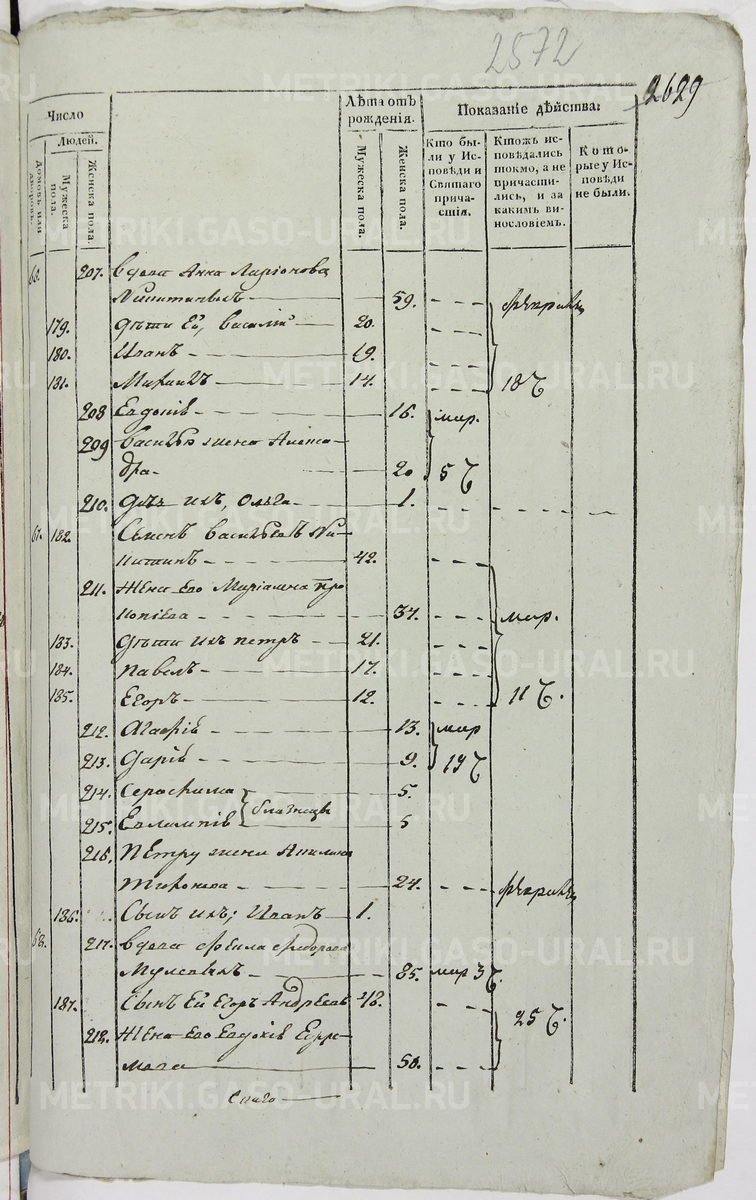 2572
2629
Число
Людей.
Домовъ или дворовъ.
Мужеска пола.
Женска пола.
Лѣта отъ рожденія.
Мужеска пола.
Женска пола.
Показаніе дѣйства:
Кто были у Исповѣди и Святаго причастія.
Ктожъ исповѣдались токмо, а не причастились, и за какимъ винословіемъ.
Которые у Исповѣди не были.
207. вдова Анна Ларіонова
59. февраля
179. дѣти Ея, Василій 20.
180. Иванъ 19.
181. Михаилъ 14. 18
208 Евдокія 16. мар.
209 Василья жена Алекса-
дра 20 5
210. дочь ихъ, Ольга 1.
67. 182. Семенъ Васильевъ Ни-
китинъ 42.
211. Жена его Маріамна про
копіева 37. мар.
183. дѣти ихъ петръ 21.
184. павелъ 17.
185. Егоръ 12. 11
212. Агафія 13. мар
213. Дарія 9. 19
214. Серафима 5.
близнецы
215. Евлампія 5
216. Петру жена Акилина
24. февраля
186. Сынъ ихъ; Иванъ 1.
68. 217. вдова
85. мар 3
187. Сынъ Ея Егоръ Андреевъ 48. 25
218. Жена его Евдокія Ефре-
мова 50.
METRIKI.GASO-URAL.RU